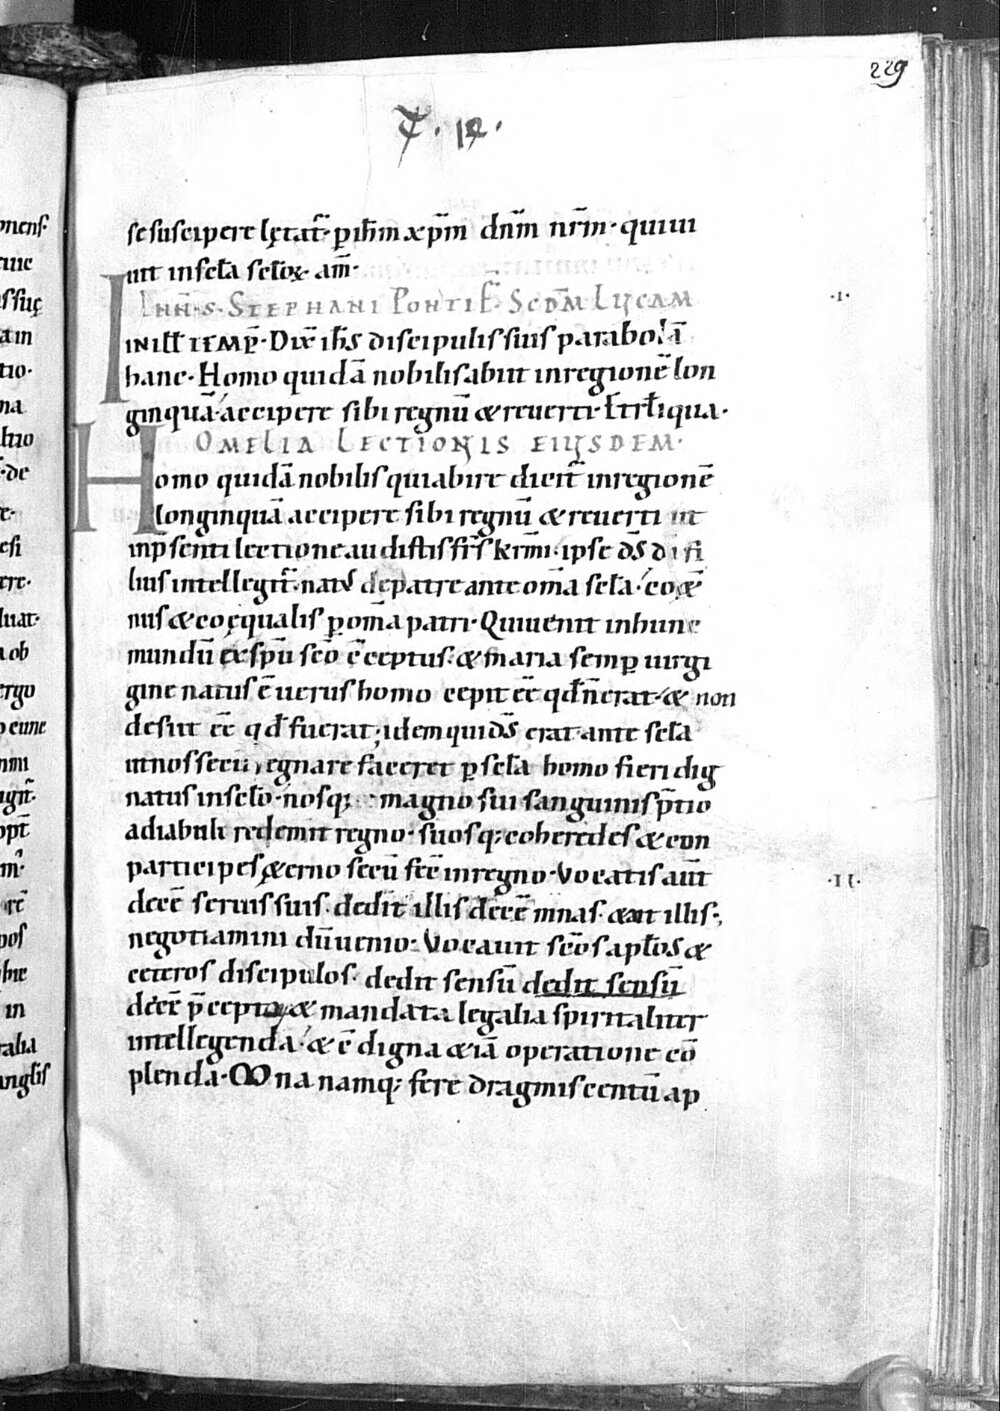 229
se suscipere lętat̄· p ihm̄ xp̄m dn̄m nr̄m· qui uiu
uit in scl̄a scl̄oꝝ· am̄·
IN NT̄· S· STEPHANI PONTIF̄· SCD̄M LUCAM
IN ILL̄ TEMP̄· Dix̄ ihs̄ discipulis suis parabolā
hanc· Homo quidā nobilis abiit in regionē lon
ginquā accipere sibi regnū & reuerti· & rl̄iqua·
HOMELIA LECTIONIS EIUSDEM·
Homo quidā nobilis qui abire dicit̄ in regionē
longinquā accipere sibi regnū & reuerti ut
in p̄senti lectione audistis frs̄ kr̄mi· ipse ds̄ di fi
lius intellegit̄· natus de patre ante om̄a scl̄a· co&
nus & coęqualis p om̄a patri· Qui uenit in hunc
mundū ex sp̄u sc̄o c̄ceptus· & maria semp uirgi
gine natus ē uerus homo cepit eē qd̄ n̄ erat· & non
desiit eē qd̄ fuerat; idem qui ds̄ erat ante scl̄a
ut nos secū regnare faceret p scl̄a homo fieri dig
natus in scl̄o· nosq; magno sui sanguinis p̄tio
a diabuli redemit regno· suosq; coheredes & con
participes &erno secū fec̄ in regno· Vocatis aut̄
decē seruis suis· dedit illis decē mnas· & ait illis;
negotiamini dū uenio· Vocauit sc̄os apl̄os &
ceteros discipulos· dedit sensū dedit sensū
decē p̄cepta & mandata legalia spiritaliter
intellegenda· & ē digna &iā operatione cō
plenda· Mna namq; fere dragmis centū ap
·I·
·II·